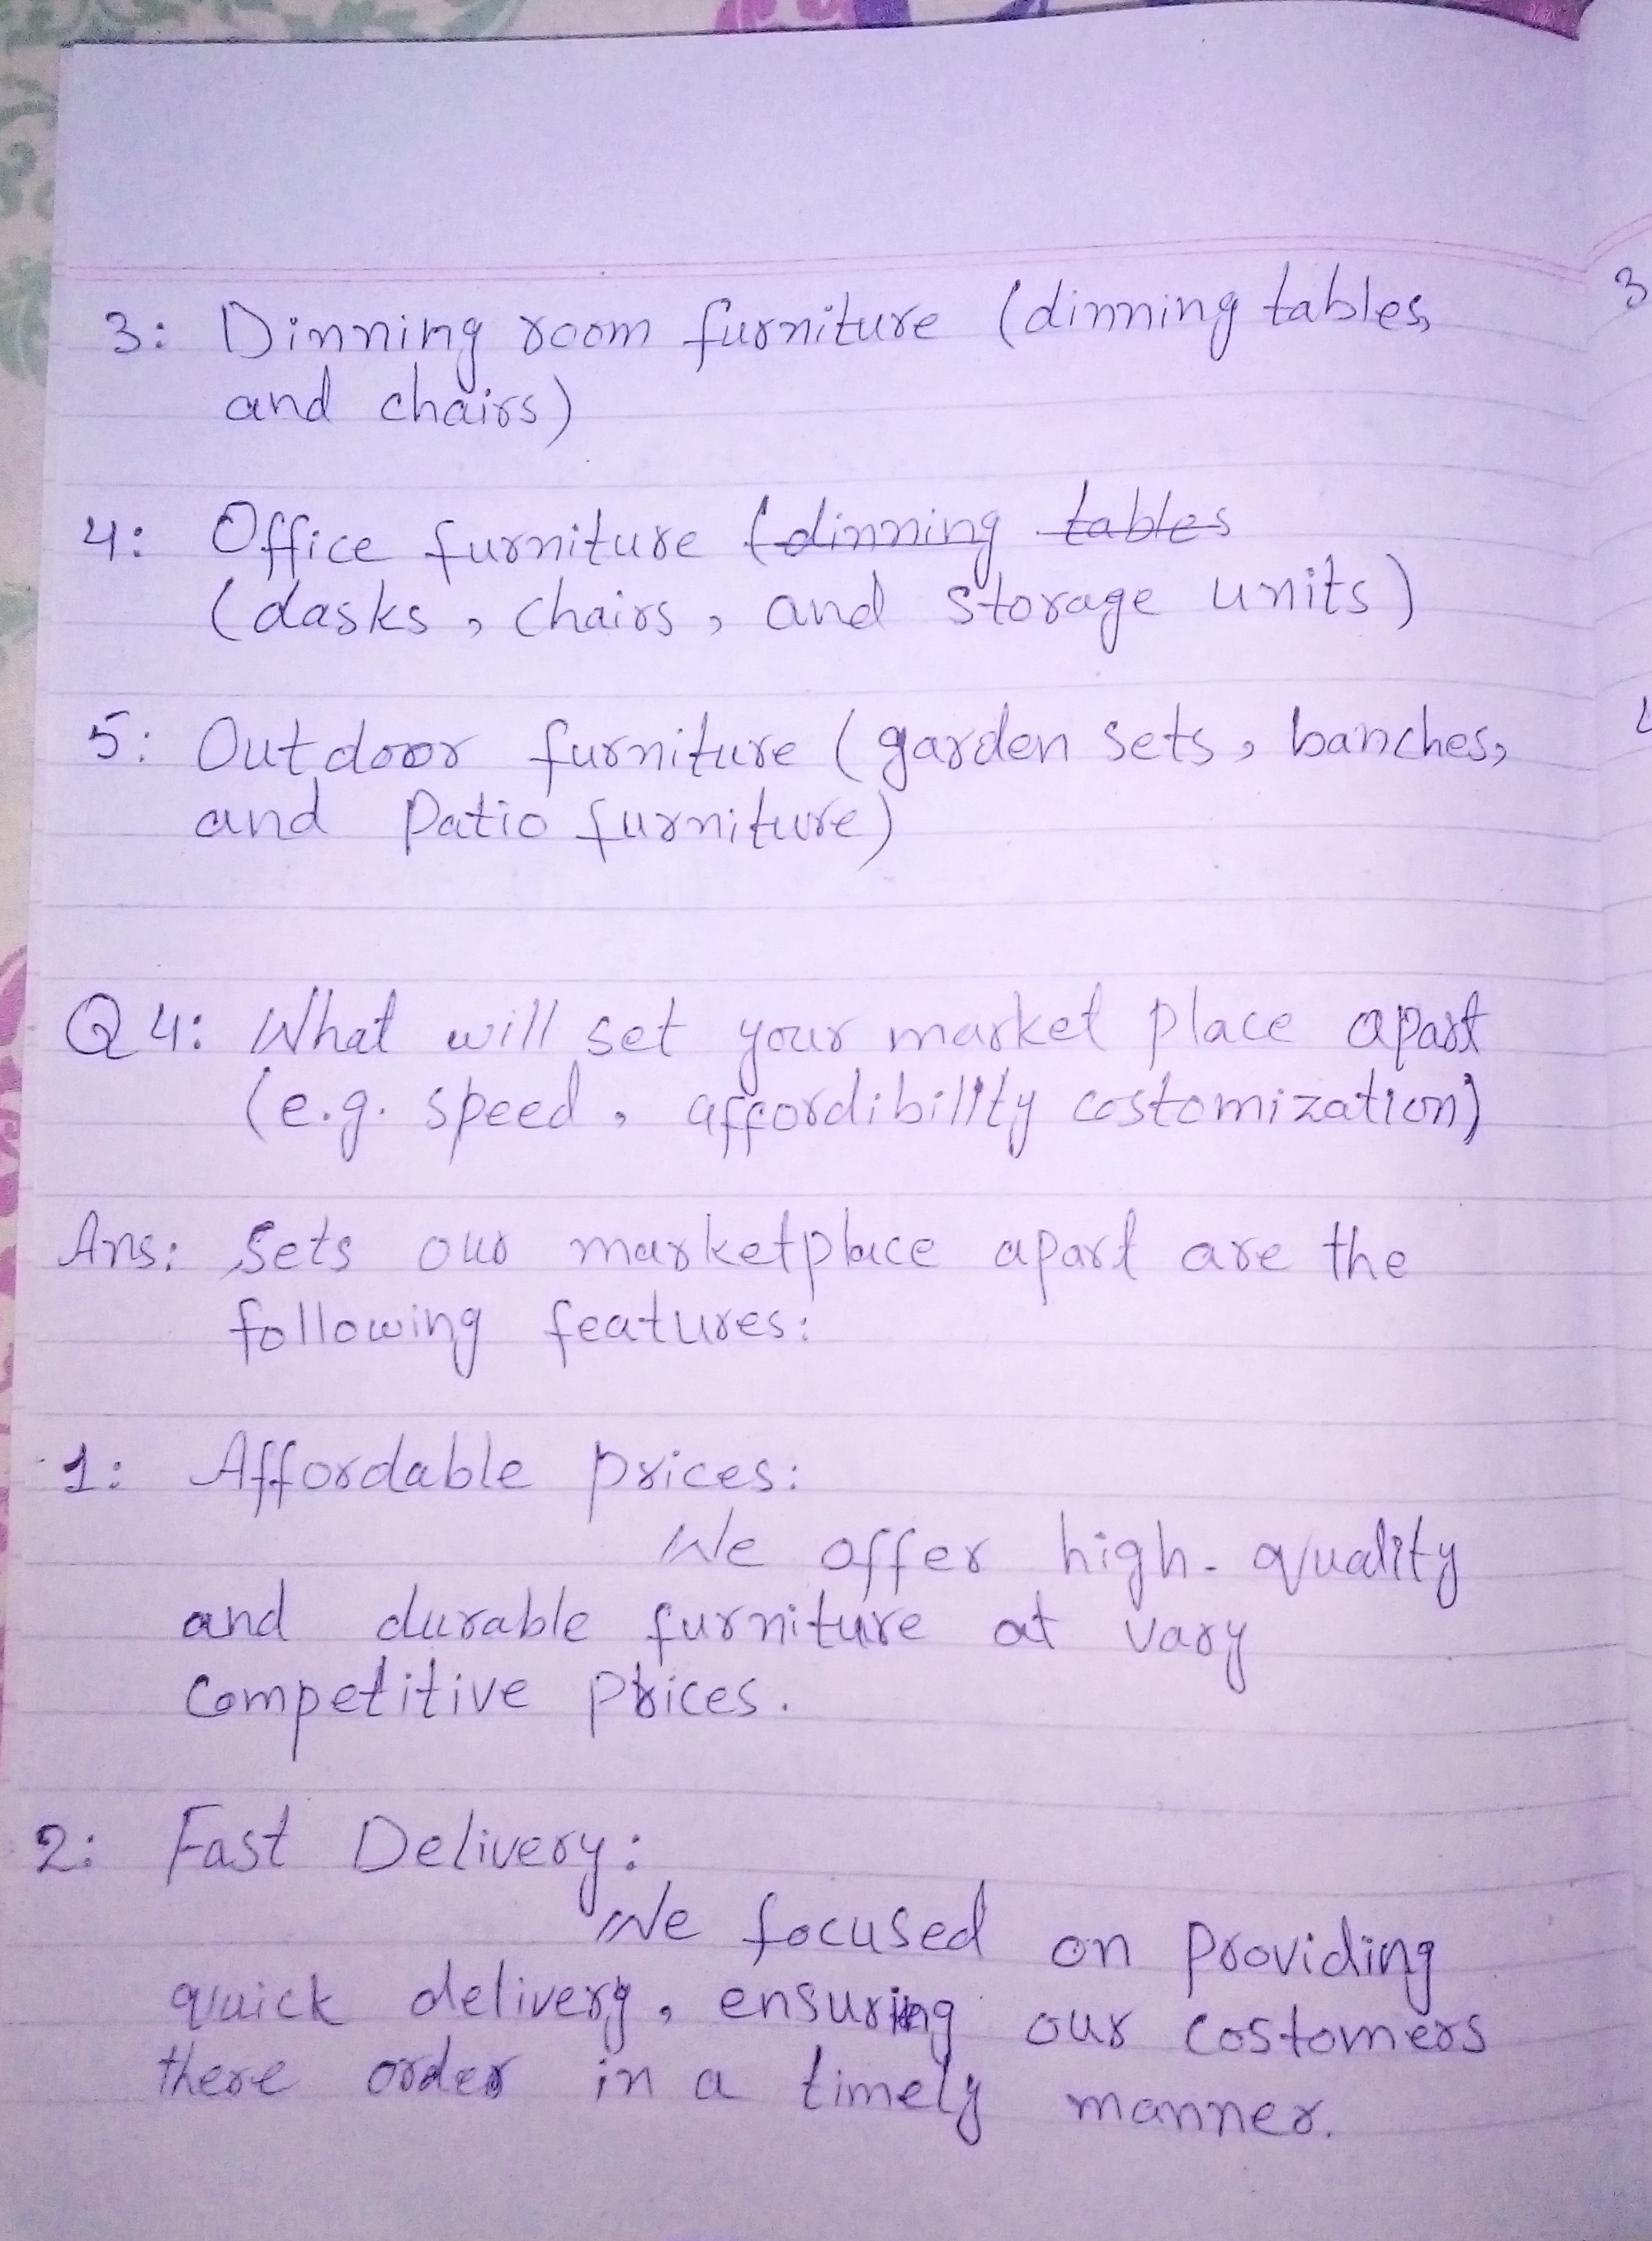 3: Dinning room furniture (dinning tables,
and chairs)
4: Office furniture (dinning tables
(dasks, chairs, and storage units)
5: Outdoor furniture (garden sets, banches,
and Patio furniture)
Q4: What will set your market place apart
(e.g. speed, affordibility costomization)
Ans: Sets our marketplace apart are the
following features:
1: Affordable prices:
We offer high-quality
and durable furniture at vary
Competitive prices.
2: Fast Delivery:
We focused on providing
quick delivery, ensuring our costomers
there order in a timely manner.
3